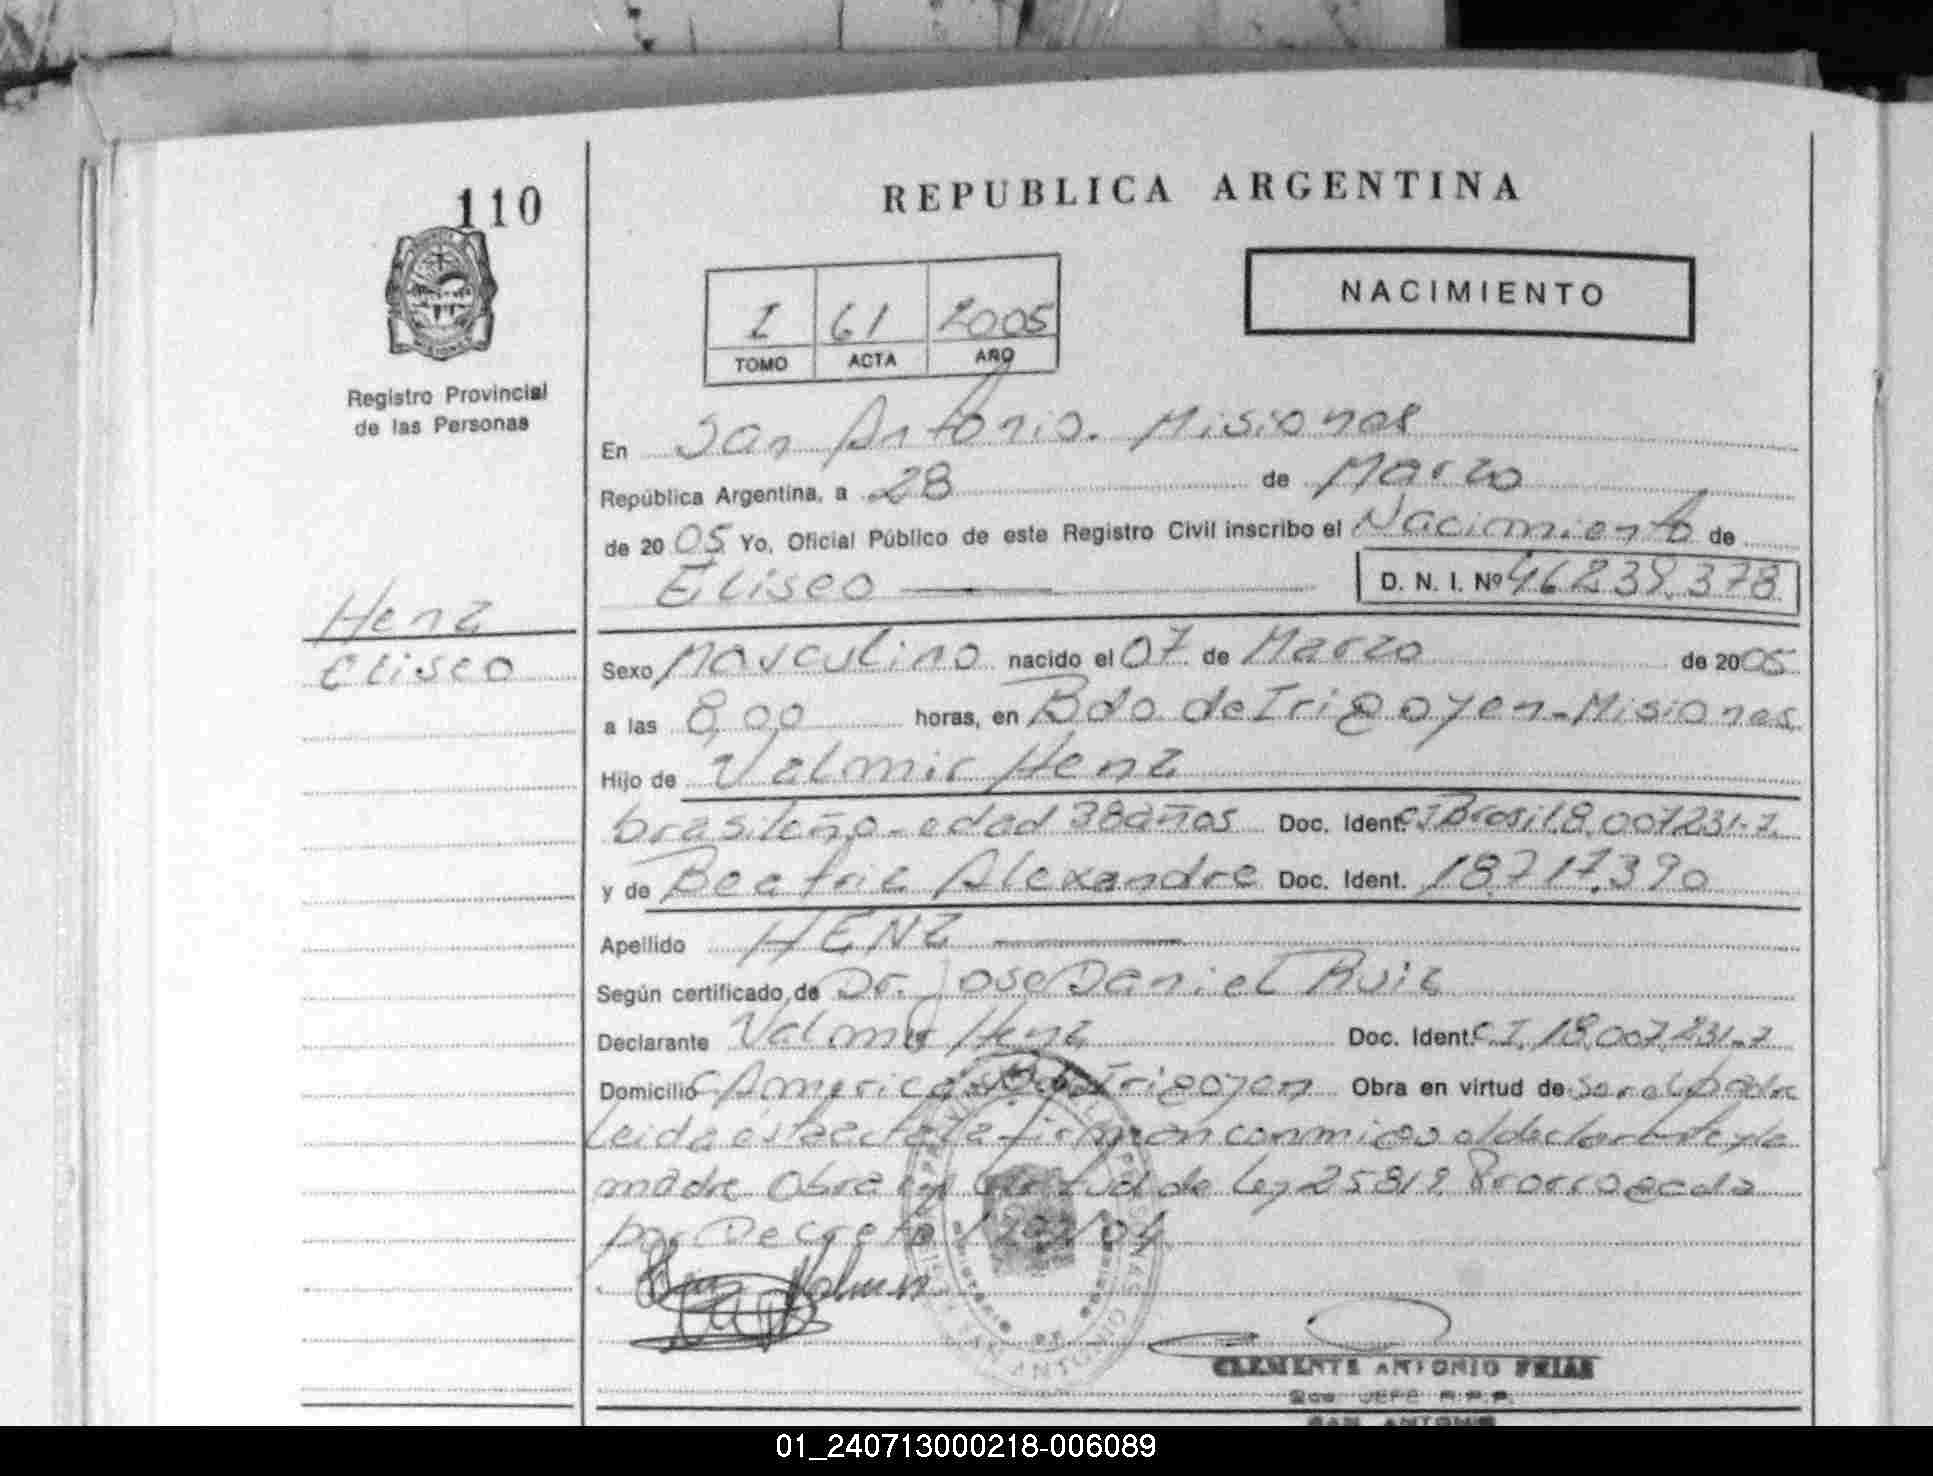 110
REPUBLICA ARGENTINA
NACIMIENTO
I 61 2005
TOMO ACTA AÑO
Registro Provincial
de las Personas
En San Antonio. Misiones
República Argentina, a 28 de Marzo
de 2005 Yo, Oficial Público de este Registro Civil inscribo el Nacimiento de
Eliseo D. N. I. Nº 46.239.378
Henz
Eliseo
Sexo Masculino nacido el 07 de Marzo de 2005
a las 8,00 horas, en Bdo de Irigoyen - Misiones
Hijo de Valmir Henz
brasileño - edad 38 años Doc. Ident. CI Brasil 8.007.231-7
y de Beatriz Alexandre Doc. Ident. 18.717.390
Apellido HENZ
Según certificado, de Dr. Jose Daniel Ruiz
Declarante Valmir Henz Doc. Ident. C.I. 18.007.231-7
Domicilio America Bdo Irigoyen Obra en virtud de ser el padre
Leida este acta la firman conmigo el declarante y la
madre Obra en virtud de Ley 25819 Prorrogada
por Decreto /04
CLEMENTE ANTONIO FRIAS
JEFE R.P.P.
SAN ANTONIO
01_240713000218-006089